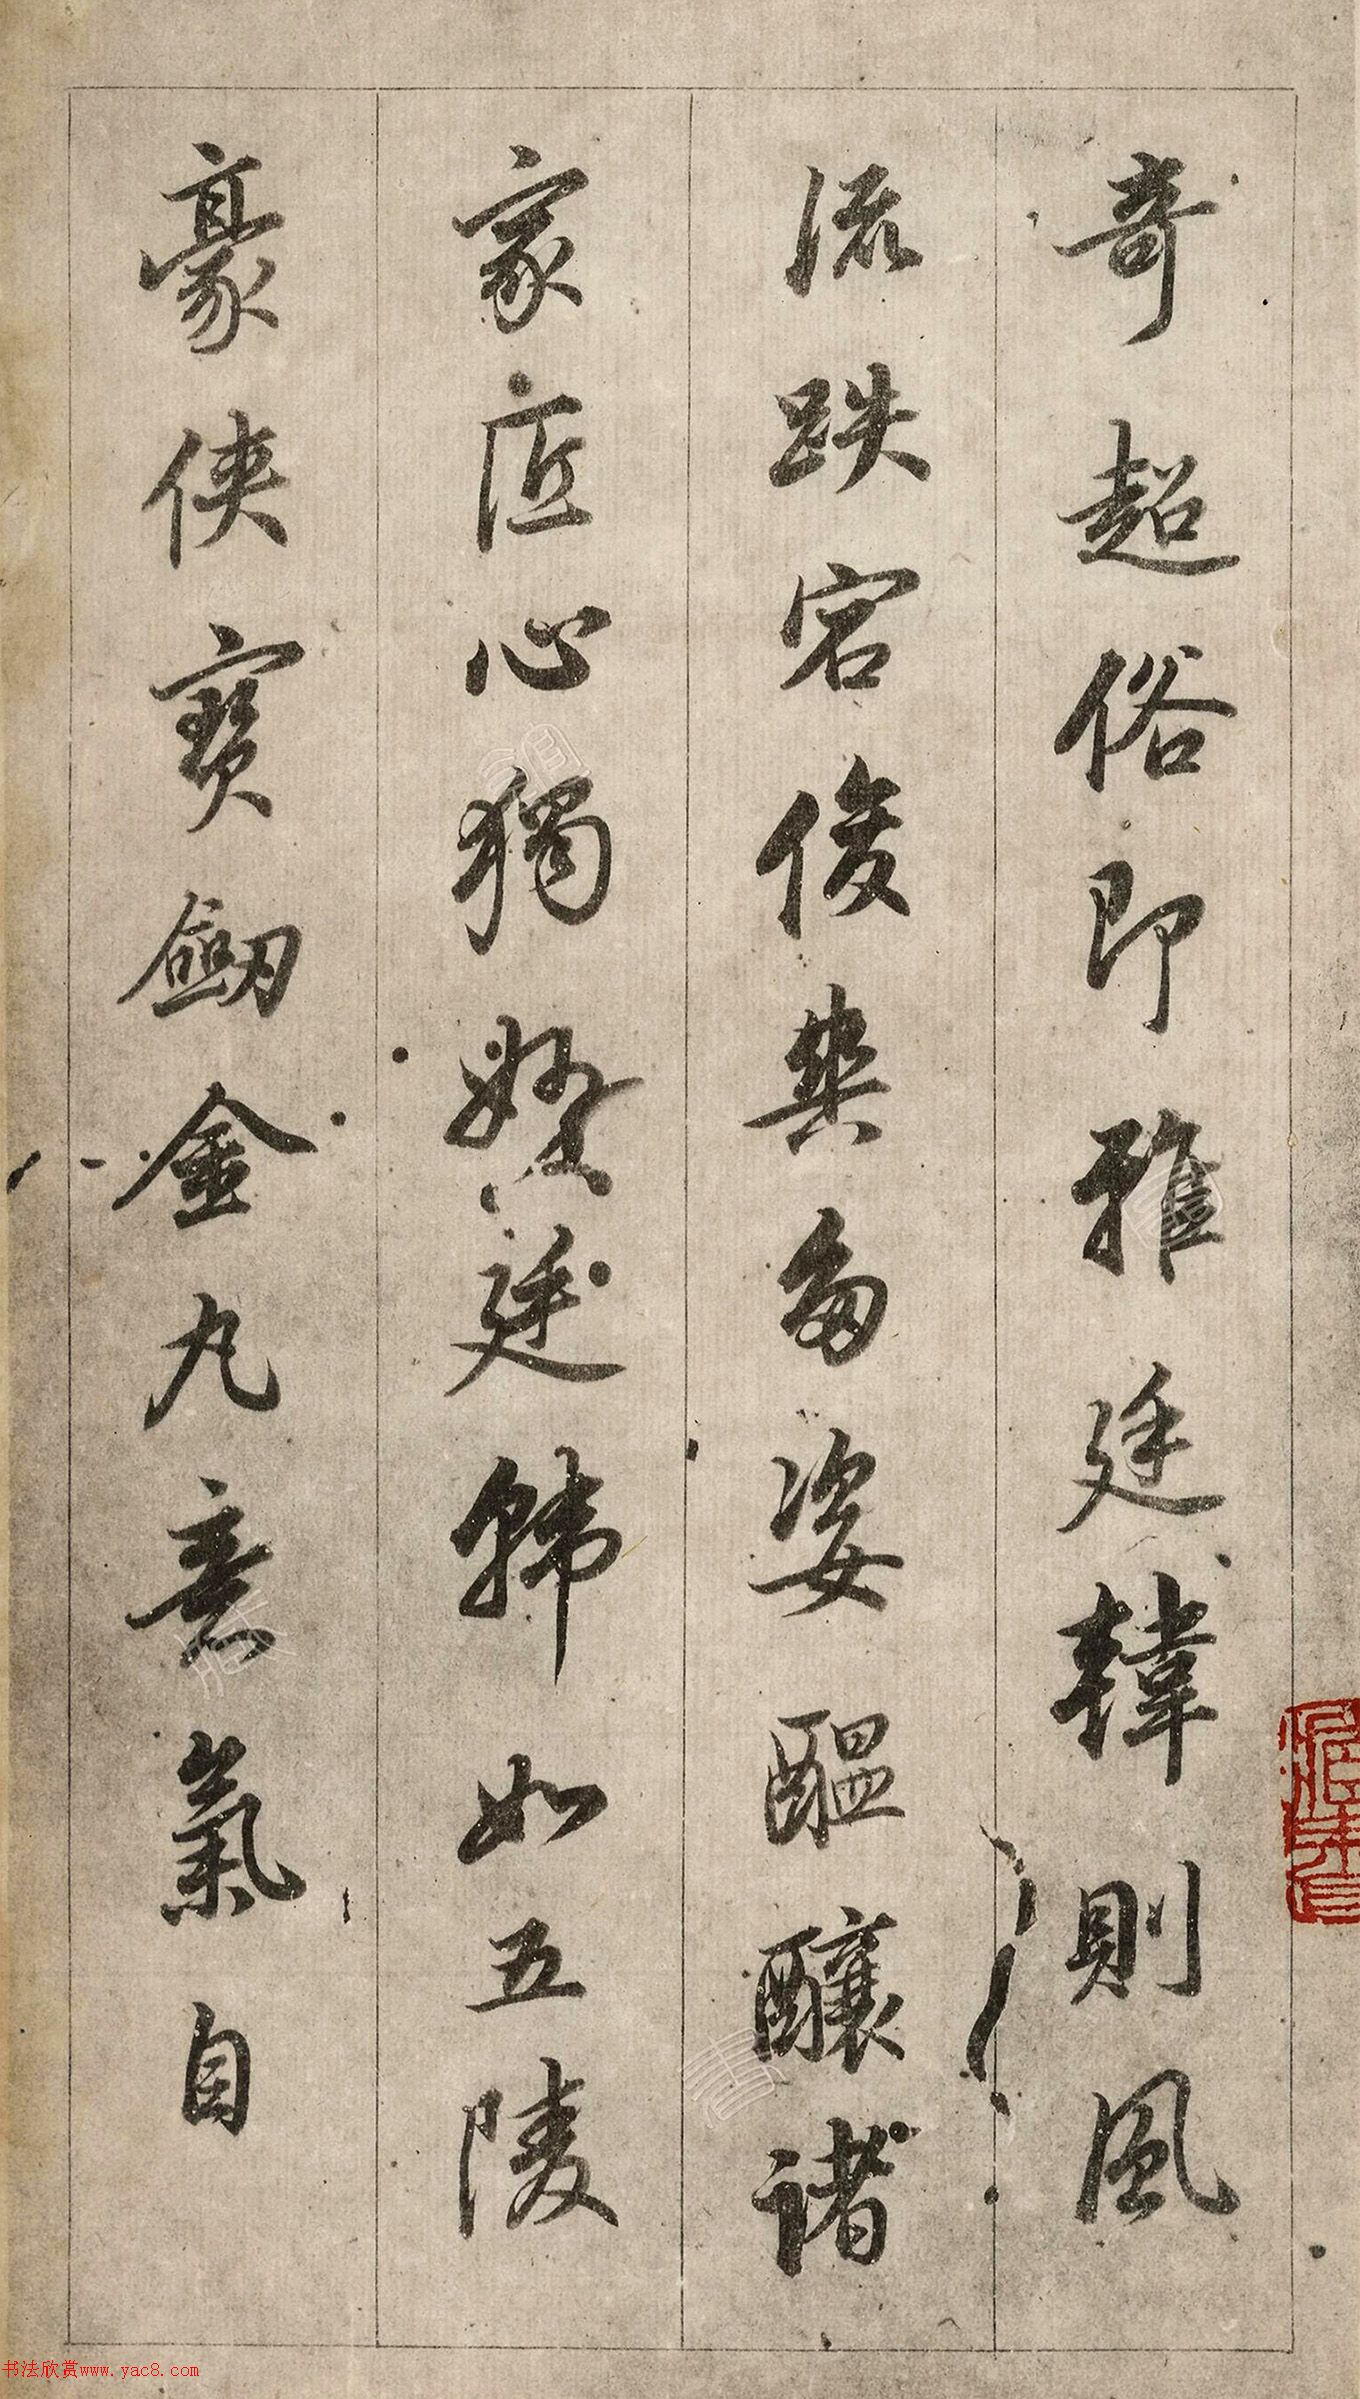 奇超俗即雅廷韓則風
流跌宕俊爽多姿醞釀諸
家匠心獨繫廷韓如五陵
豪俠寶劒金丸意氣自
书法欣赏www.yac8.com